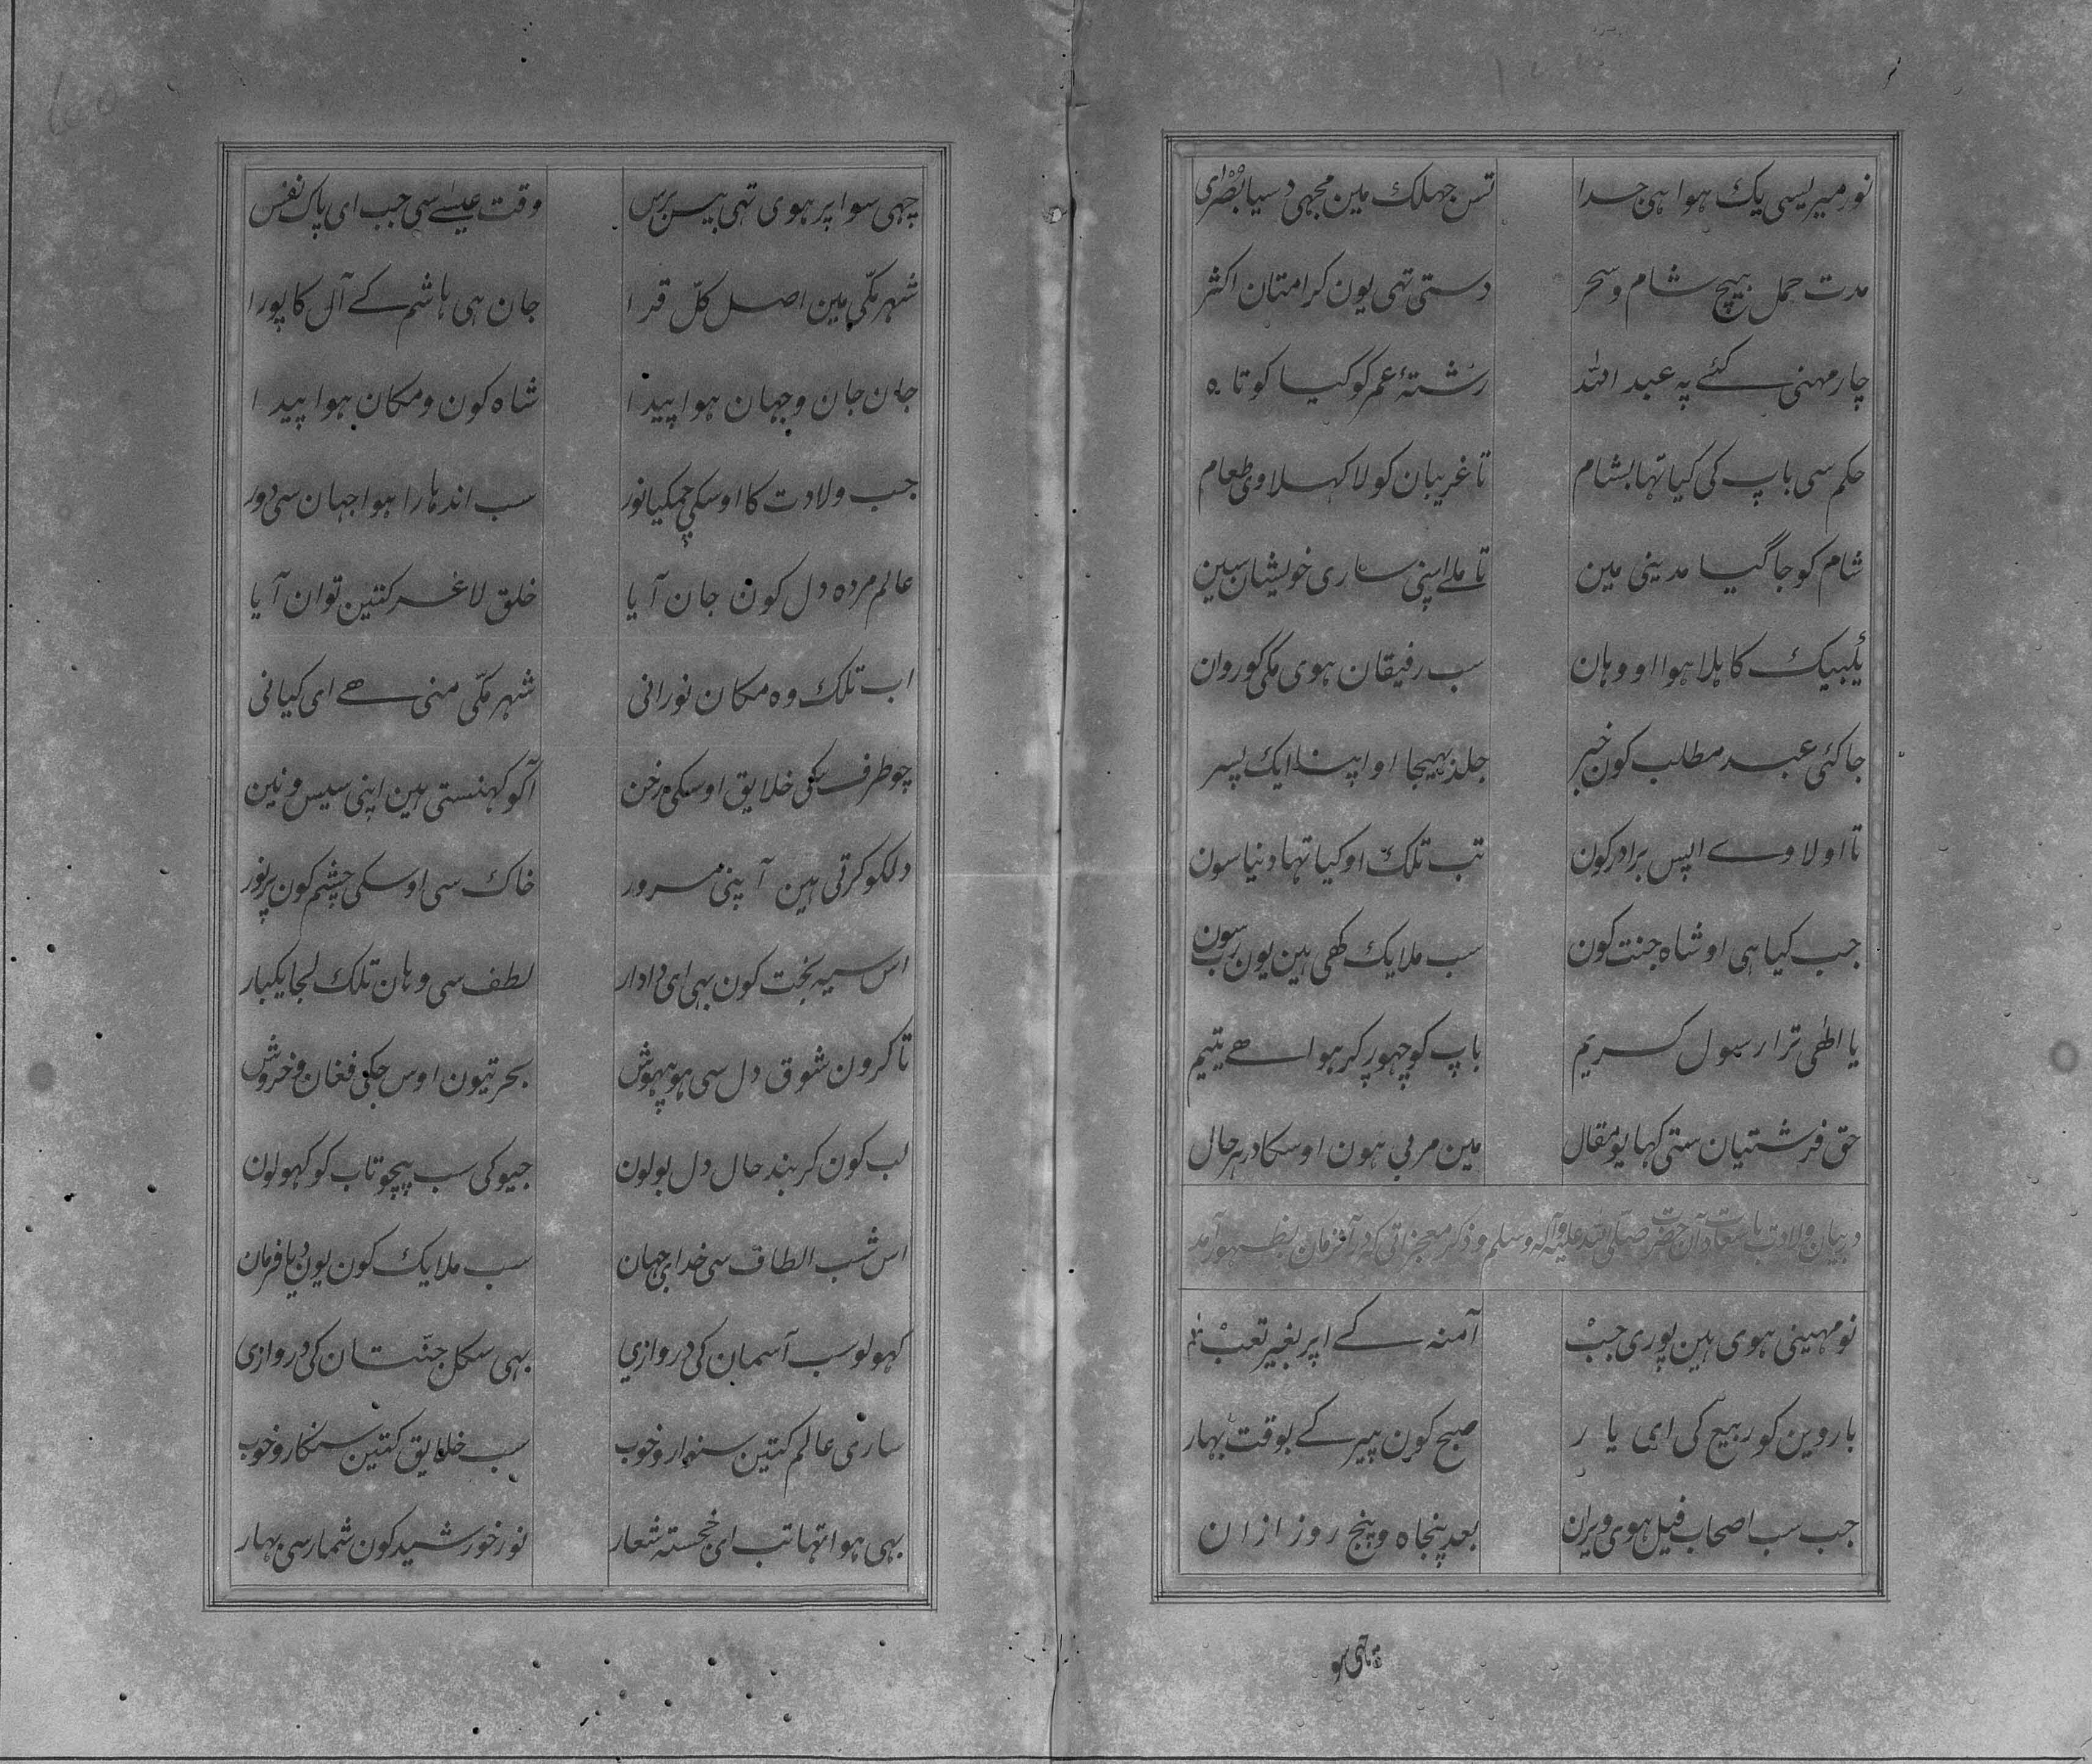 نور میریسی یک ہوا ہی جدا تس جہلک مین مجہی دسیا بصرای
مدت حمل بیچ شام و سحر دستی تہی یون کرامتان اکثر
چار مہنی کئے پہ عبد اللہ رشتۂ عمر کو کیا کوتاہ
حکم سی باپ کی کیا تہا بشام تا غریبان کو لا کہلاوی طعام
شام کو جا گیا مدینی مین تا ملے اپنی ساری خویشان سین
یکبیک کاہلا ہوا او وہان سب رفیقان ہوی مکی کو روان
جا کئی عبد مطلب کون خبر جلد بہیجا او اپنا ایک پسر
تا او لاوے اپس برادر کون تب تلک او کیا تہا دنیا سون
جب کیا ہی او شاہ جنت کون سب ملایک کھی ہین یون رب سون
یا الٰھی ترا رسول کریم باپ کو چہور کر ہوا ھے یتیم
حق فرشتیان ستی کہا یو مقال مین مربی ہون اوسکا در ہر حال
در بیان ولادت با سعادت آن حضرت صلی اللہ علیہ وآلہ وسلم و ذکر معجزاتی کہ در آنزمان بظہور آمد
نو مہینی ہوی ہین پوری جب آمنہ کے اپر بغیر تعب
باروین کو ربیع کی ای یار صبح کون پیر کے بوقت بہار
جب سب اصحاب فیل ہوی ویران بعد پنجاہ و پنج روز ازان
چہی سو اپر ہوی تہی بیس برس وقت عیسے سی جب ای پاک نفس
شہر مکّی مین اصل کلّ قدرا جان ہی ہاشم کے آل کا پورا
جان جان و جہان ہوا پیدا شاہ کون و مکان ہوا پیدا
جب ولادت کا اوسکی جمکیا نور سب اندہارا ہوا جہان سی دور
عالم مردہ دل کون جان آیا خلق لاغر کتین توان آیا
اب تلک وہ مکان نورانی شہر مکّی منی ھے ای کیانی
چو طرف سکی خلایق اوسکی رخن آکو کہنستی ہین اپنی سیس و نین
دلکو کرتی ہین آپنی مسرور خاک سی اوسکی چشم کون پر نور
اس سیہ بخت کون بہی ای دادار لطف سی وہان تلک لجا یکبار
تا کرون شوق دل سی ہو بیہوش بحر تیون اوس جکی فغان و خروش
لب کون کر بند حال دل بولون جیو کی سب پیچ و تاب کو کہولون
اس شب الطاف سی خدای جہان سب ملایک کون یون دیا فرمان
کہولو سب آسمان کی دروازی بہی سکل جنّتان کی دروازی
ساری عالم کتین سنوارو خوب سب خلایق کتین سنکارو خوب
بہی ہوا تہا تب ای خجستہ شعار نور خورشید کون شمار سی بہار